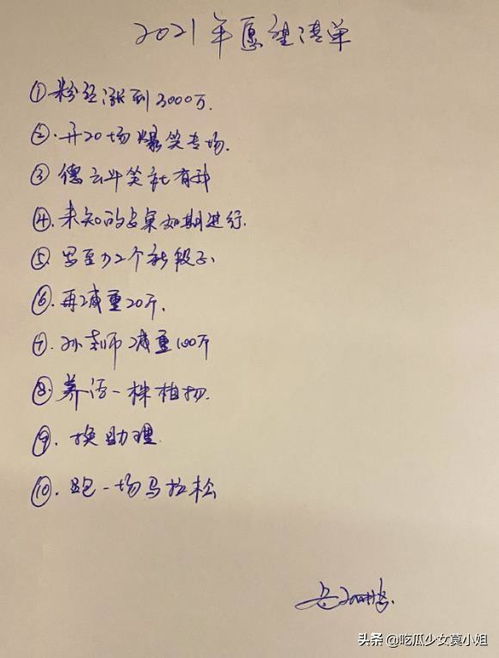 2021年愿望清单
①粉丝涨到3000万.
②.开20场爆笑专场.
③德云斗笑社有我
④.未知的占桌如期进行.
⑤.写至少2个新段子
⑥.再减重20斤.
⑦.孙老师减重100斤
⑧.养活一株植物.
⑨.换助理.
⑩.跑一场马拉松
岳云鹏.
头条 @吃瓜少女莫小姐